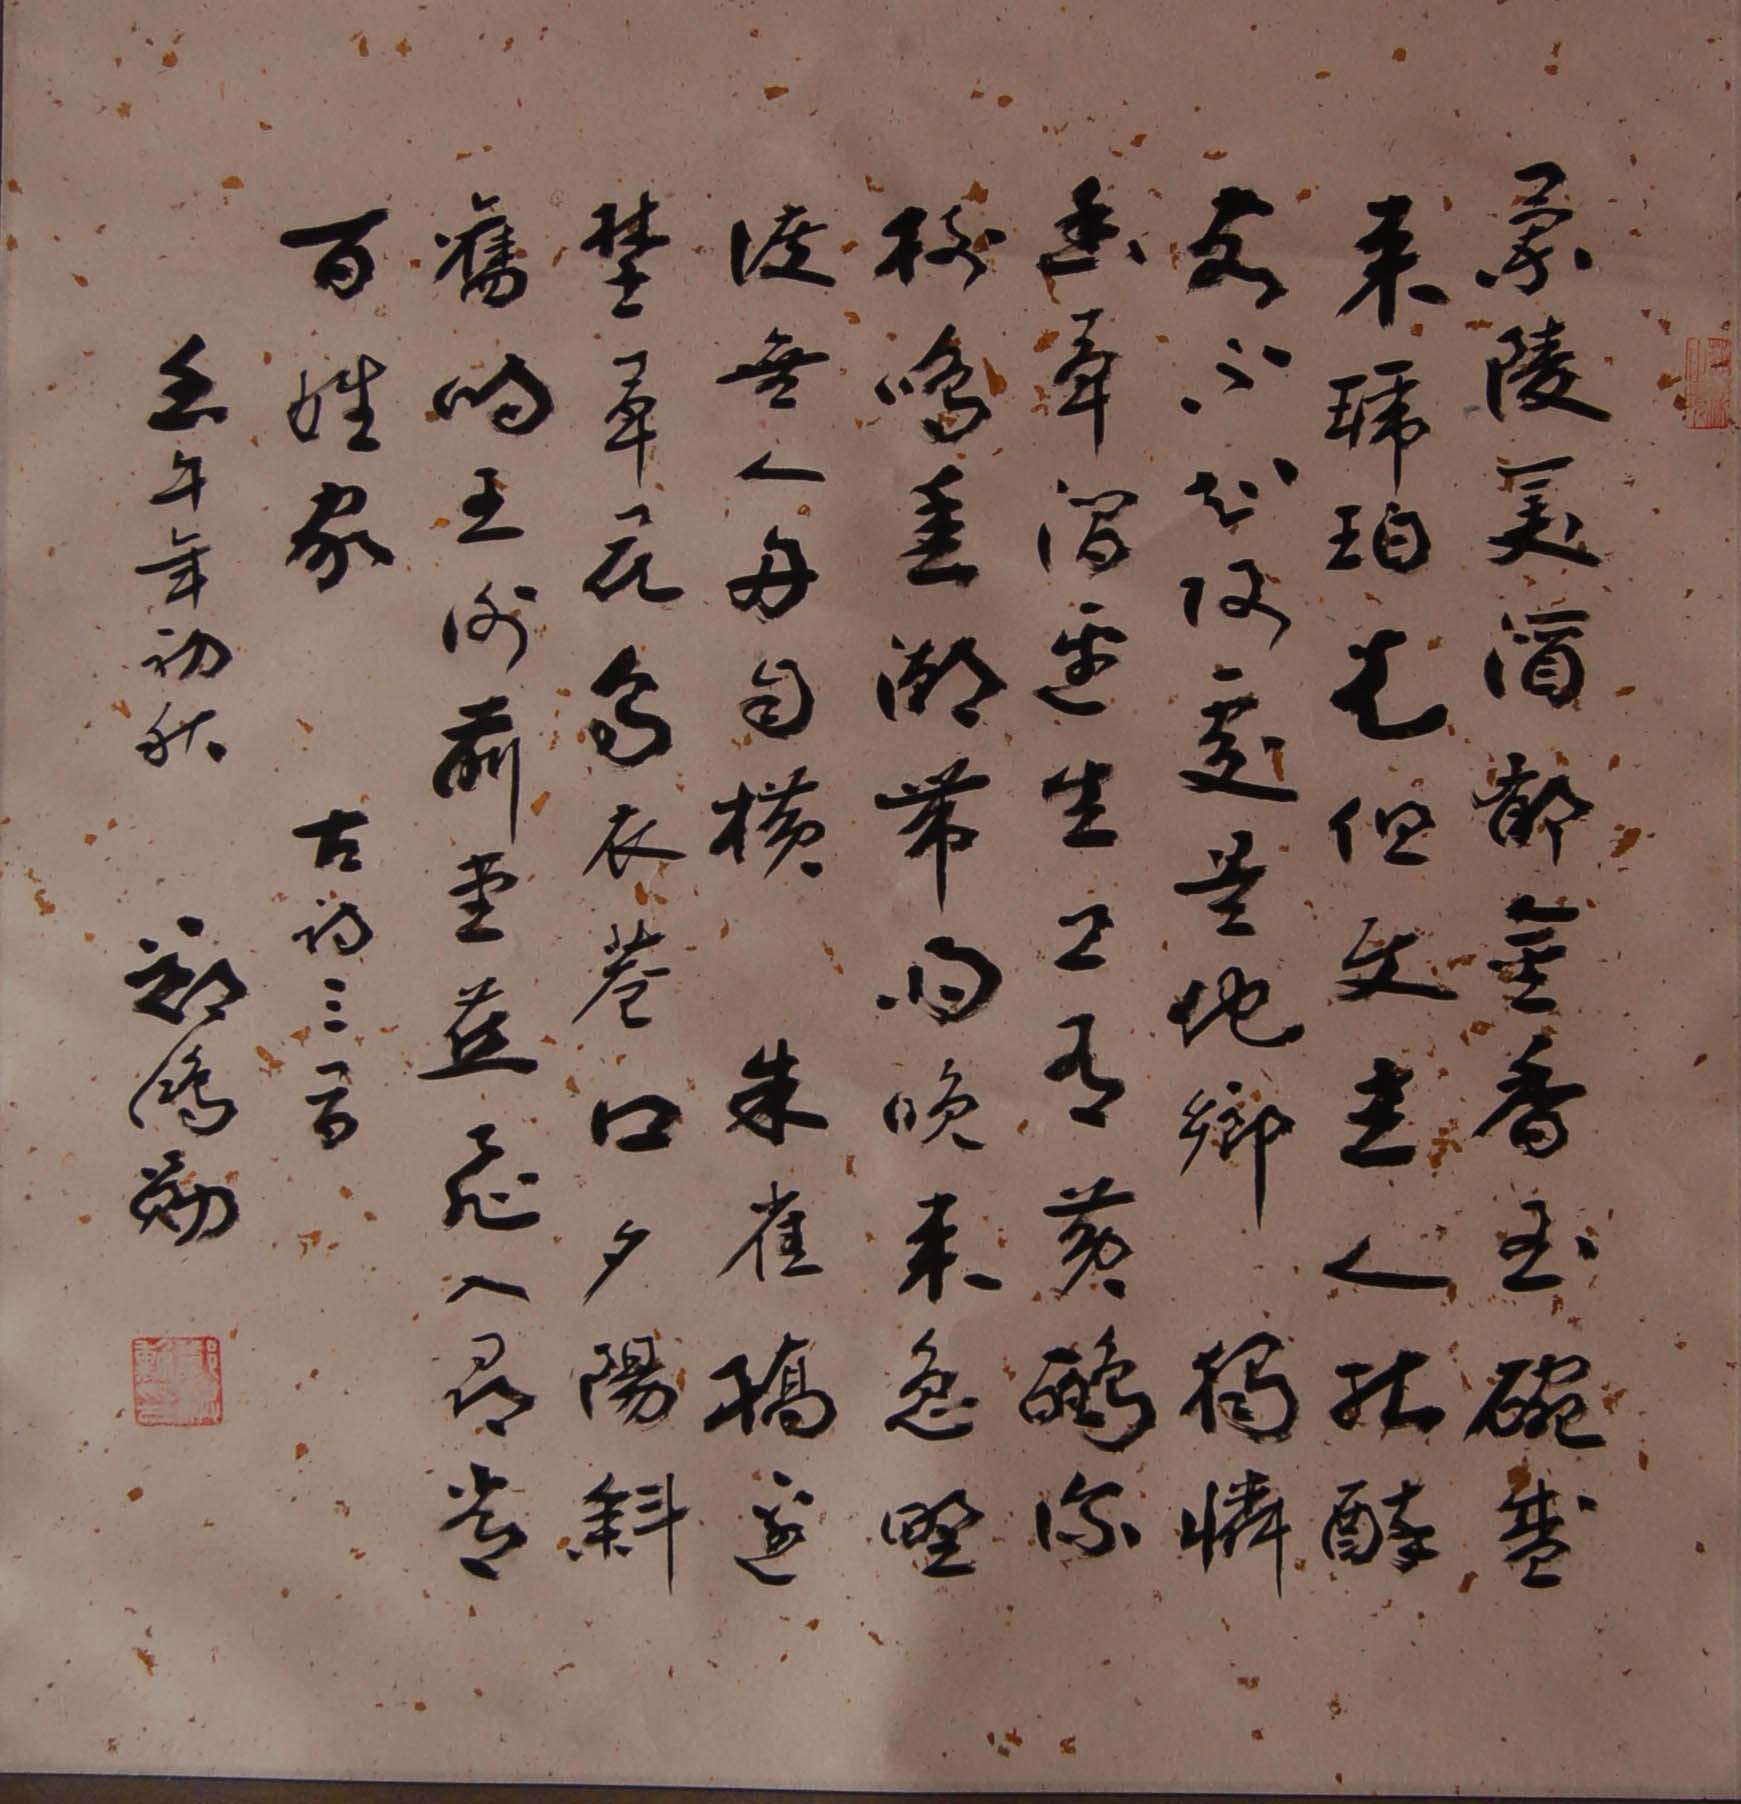 蘭陵美酒鬱金香玉碗盛
来琥珀光但使主人能醉
客不知何處是他鄉 獨憐
幽草澗邊生上有黄鸝深
樹鳴春潮帶雨晚来急野
渡無人舟自横 朱雀橋邊
埜草花烏衣巷口夕陽斜
舊時王謝前堂燕飛入尋常
百姓家 古詩三首
壬午年初秋 鄭鴻勛